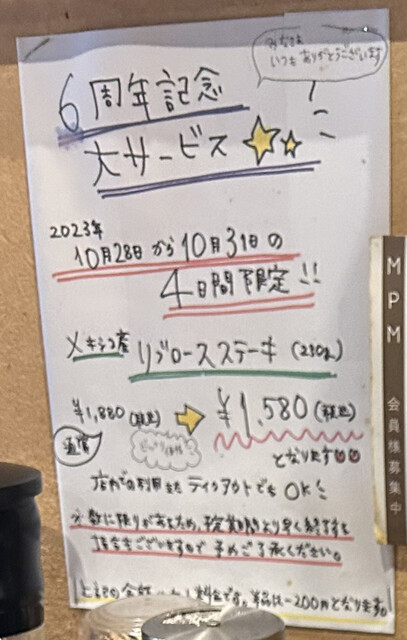 みなさま
いつも ありがとうございます
6周年記念
大サービス
2023年
10月28日から10月31日の
4日間限定!!
メキシコ産 リブロースステーキ (230g)
¥1,880(税込) ➡ ¥1,580(税込)
通常
となります
店内での利用また テイクアウトでも OK!
※数に限りがあるため、予定期間より早く終了する
場合もございますので 予めご了承ください。
料金です。単品は-200円となります。
MPM 会員様募集中